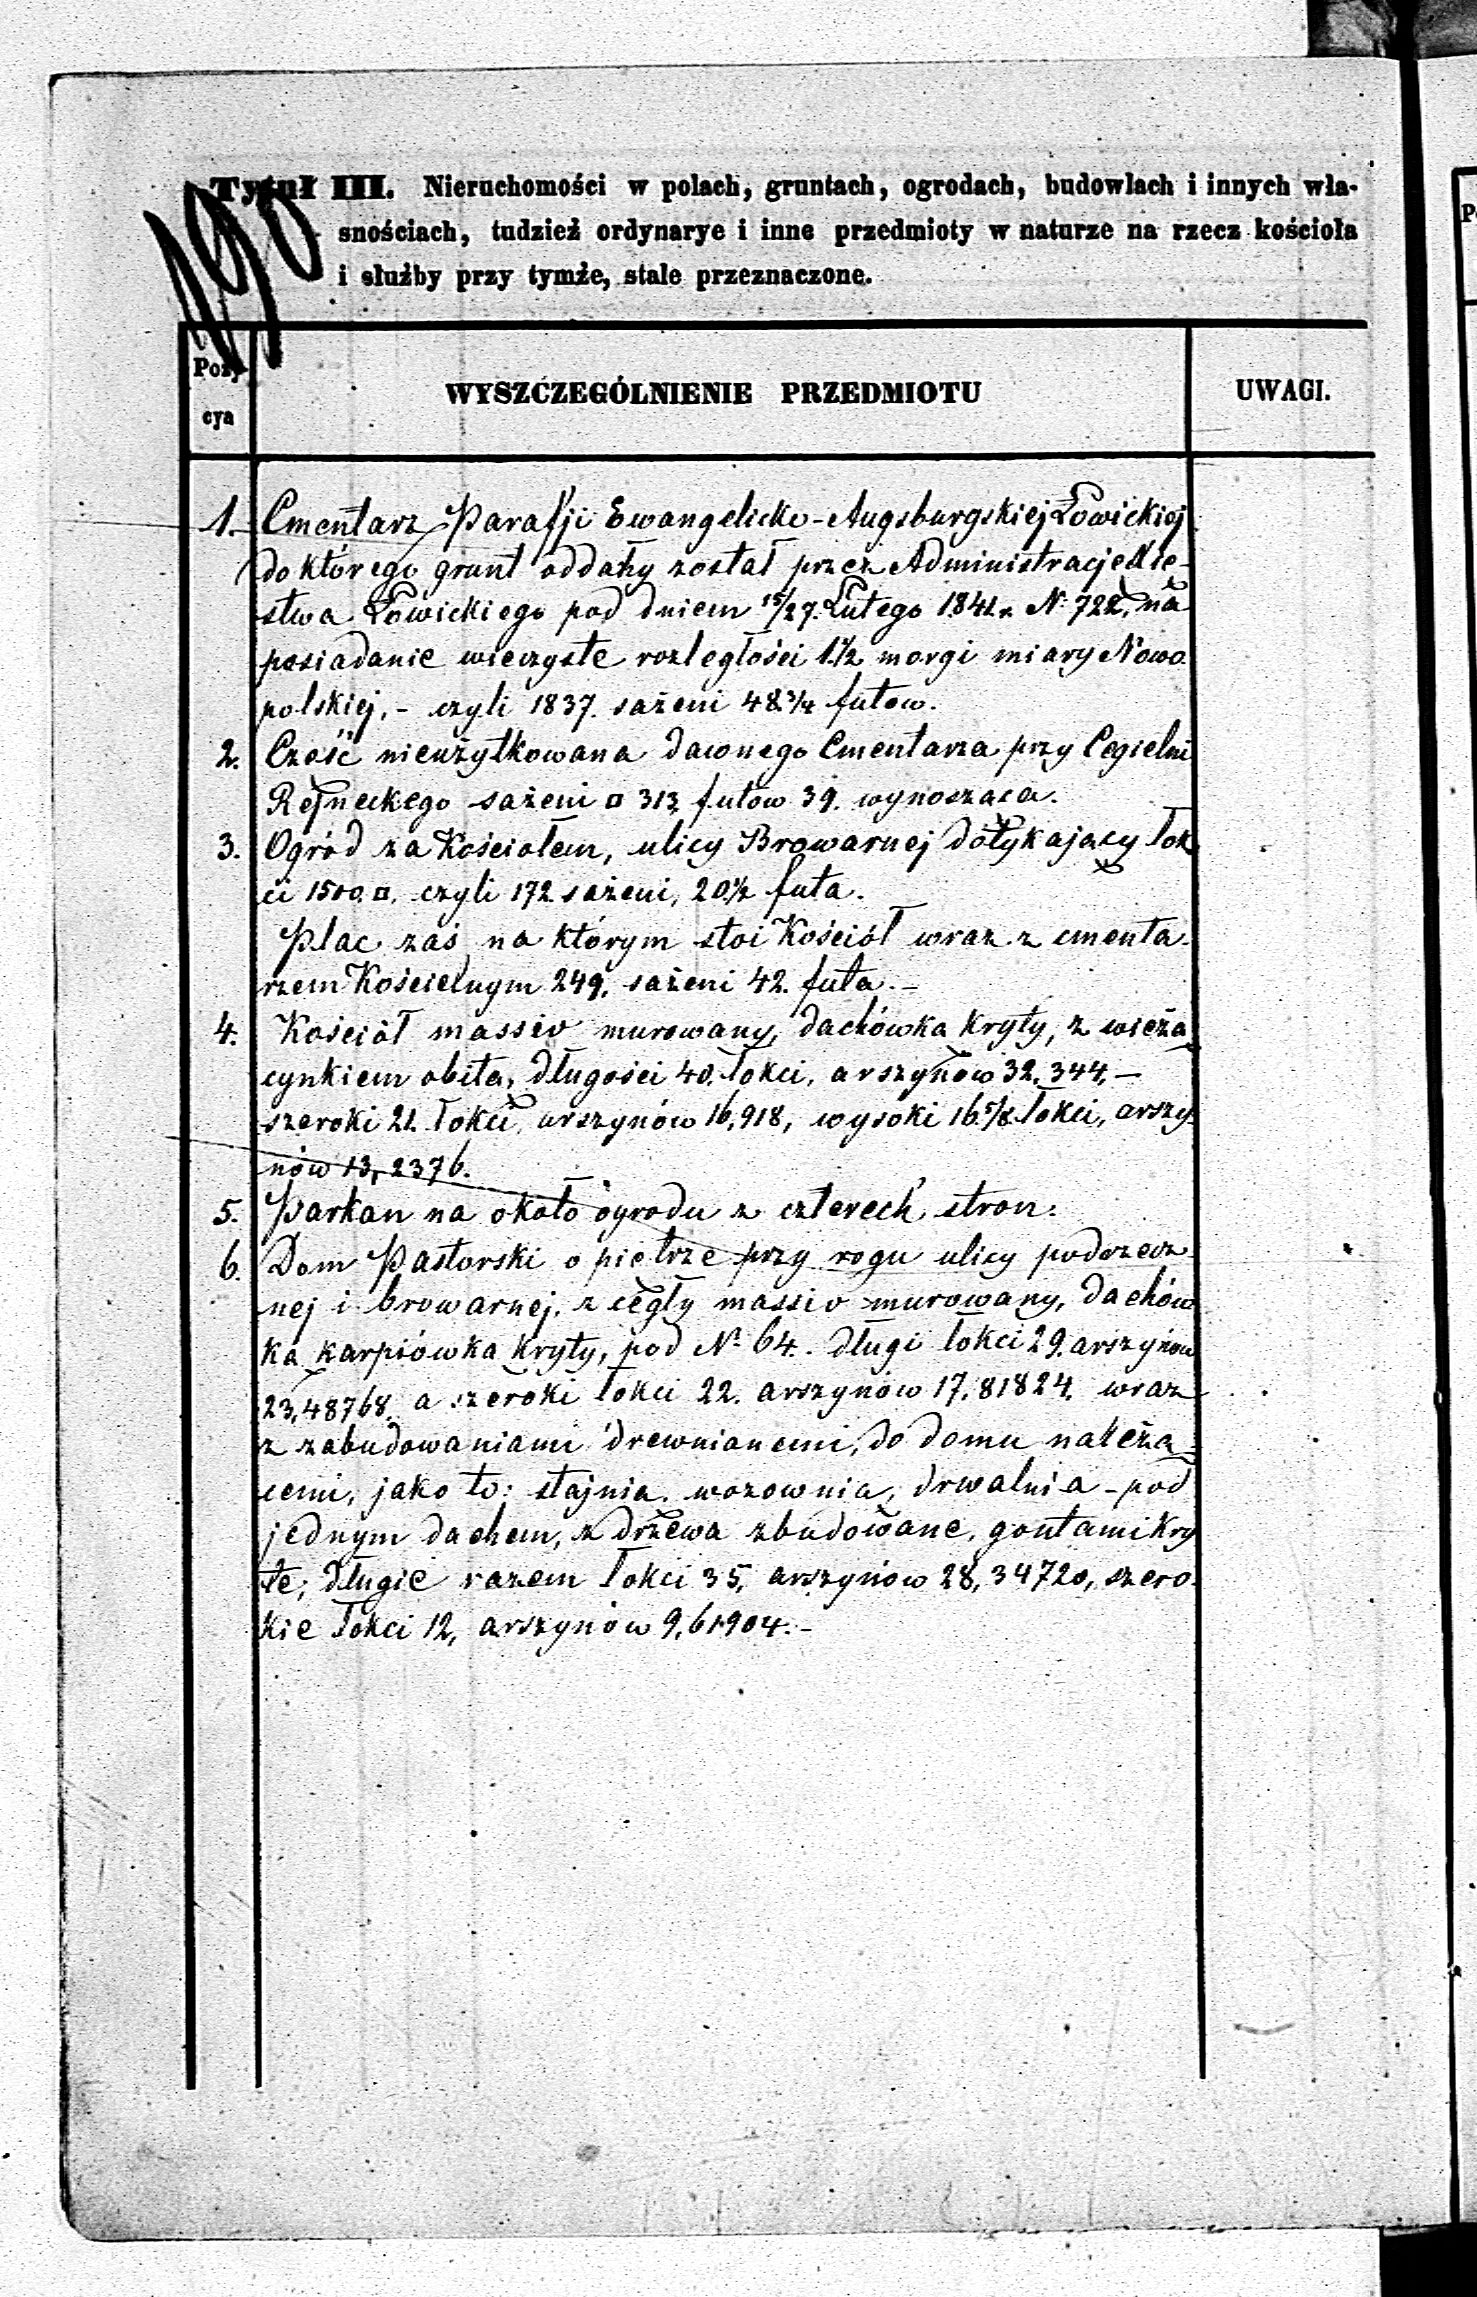 190
Tytuł III. Nieruchomości w polach, gruntach, ogrodach, budowlach i innych wła-
snościach, tudzież ordynarye i inne przedmioty w naturze na rzecz kościoła
i służby przy tymże, stale przeznaczone.
Pozy-
cya
WYSZCZEGÓLNIENIE PRZEDMIOTU
UWAGI.
1. Cmentarz Parafji Ewangelicko-Augsburgskiej Łowickiej
do którego grunt oddany został przez Administracje Xie-
stwa Łowickiego pod dniem 15/27. Lutego 1841 r. N. 722, na
posiadanie wieczyste rozległości 1.1/2 morgi miary Nowo
polskiej, - czyli 1837. sażeni 48 3/4 futow.
2. Cześć nieużytkowana dawnego Cmentarza przy Cegielni
sażeni □ 313 futow 39. wynosząca.
3. Ogród za Kościołem, ulicy Browarnej dotykający łok
ci 1500 □, czyli 172 sażeni, 20 1/2 futa.
Plac zaś na którym stoi Kościół wraz z cmenta-
rzem Kościelnym 249. sażeni 42. futa. -
4. Kościół massiv murowany, dachówka kryty, z wieża
cynkiem obita, długości 40. łokci, arszynów 32. 344. -
szeroki 21 łokci, arszynów 16,918, wysoki 16 5/8 łokci, arszy-
nów 13,2376.
5. Parkan na około ogrodu z czterech stron.
6. Dom Pastorski o pietrze przy rogu ulicy podrzecz-
nej i browarnej, z cegły massiv murowany, dachów
ka karpiówka kryty, pod N. 64. długi łokci 29. arszynow
23,48768, a szeroki łokci 22. arszynów 17,81824, wraz
z zabudowaniami drewnianemi, do domu należa-
cemi, jako to: stajnia, wozownia, drwalnia - pod
jednym dachem, z drzewa zbudowane, gontami kry
te; długie razem łokci 35, arszynów 28,34720, szero-
kie łokci 12, arszynów 9,61904. -